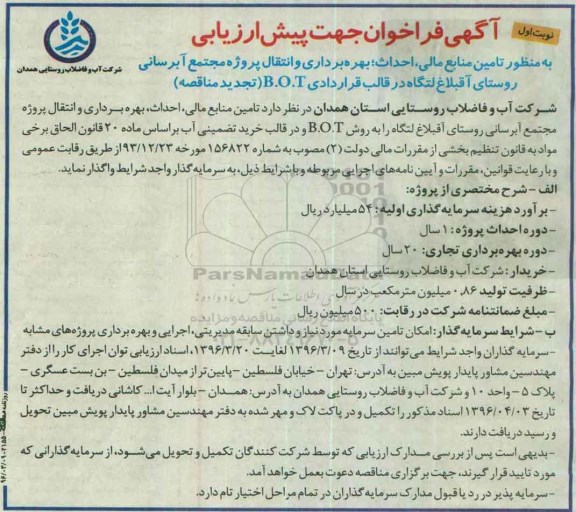 نوبت اول
آگهی فراخوان جهت پیش ارزیابی
شرکت آب و فاضلاب روستایی همدان
به منظور تامین منابع مالی، احداث؛ بهره برداری و انتقال پروژه مجتمع آبرسانی
روستای آقبلاغ لتگاه در قالب قراردادی B.O.T (تجدید مناقصه)
شرکت آب و فاضلاب روستایی استان همدان در نظر دارد تامین منابع مالی، احداث، بهره برداری و انتقال پروژه
مجتمع آبرسانی روستای آقبلاغ لتگاه را به روش B.O.T و در قالب خرید تضمینی آب براساس ماده ۲۰ قانون الحاق برخی
مواد به قانون تنظیم بخشی از مقررات مالی دولت (۲) مصوب به شماره ۱۵۶۸۲۲ مورخه ۹۳/۱۲/۲۳ از طریق رقابت عمومی
و با رعایت قوانین، مقررات و آیین نامه‌های اجرایی مربوطه و با شرایط ذیل، به سرمایه گذار واجد شرایط واگذار نماید.
الف - شرح مختصری از پروژه:
- برآورد هزینه سرمایه گذاری اولیه: ۵۴ میلیارد ریال
- دوره احداث پروژه: ۱ سال
- دوره بهره برداری تجاری: ۲۰ سال
- خریدار: شرکت آب و فاضلاب روستایی استان همدان
- ظرفیت تولید ۰.۸۶ میلیون متر مکعب در سال
- مبلغ ضمانتنامه شرکت در رقابت: ۵۰۰ میلیون ریال
ب - شرایط سرمایه گذار: امکان تامین سرمایه مورد نیاز و داشتن سابقه مدیریتی، اجرایی و بهره برداری پروژه‌های مشابه
- سرمایه گذاران واجد شرایط می‌توانند از تاریخ ۱۳۹۶/۳/۰۹ لغایت ۱۳۹۶/۳/۲۰، اسناد ارزیابی توان اجرای کار را از دفتر
مهندسین مشاور پایدار پویش مبین به آدرس: تهران - خیابان فلسطین - پایین تر از میدان فلسطین - بن بست عسگری -
پلاک ۵ - واحد ۱۰ و شرکت آب و فاضلاب روستایی همدان به آدرس: همدان - بلوار آیت ا... کاشانی دریافت و حداکثر تا
تاریخ ۱۳۹۶/۰۴/۰۳ اسناد مذکور را تکمیل و در پاکت لاک و مهر شده به دفتر مهندسین مشاور پایدار پویش مبین تحویل
و رسید دریافت دارند.
- بدیهی است پس از بررسی مدارک ارزیابی که توسط شرکت کنندگان تکمیل و تحویل می‌شود، از سرمایه گذارانی که
مورد تایید قرار گیرند، جهت برگزاری مناقصه دعوت بعمل خواهد آمد.
- سرمایه پذیر در رد یا قبول مدارک سرمایه گذاران در تمام مراحل اختیار تام دارد.
ParsNamadData